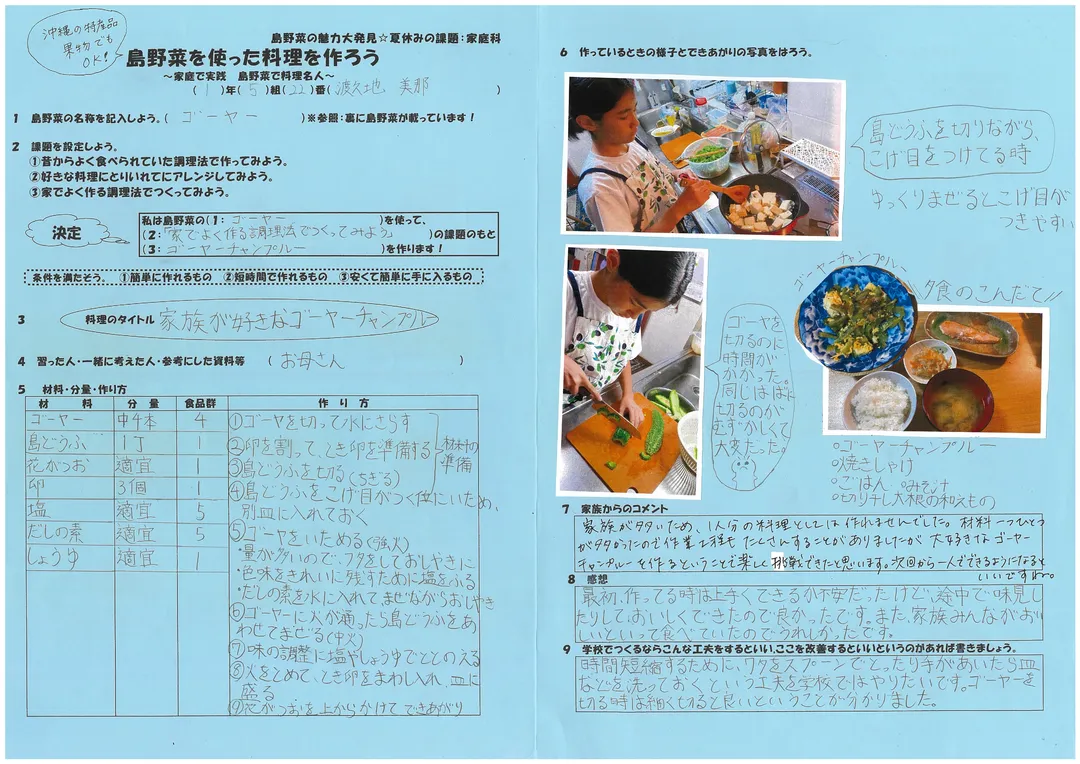 沖縄の特産品
果物でも
OK!
島野菜の魅力大発見☆夏休みの課題:家庭科
島野菜を使った料理を作ろう
~家庭で実践 島野菜で料理名人~
(1)年(5)組(22)番(渡久地 美那)
1 島野菜の名称を記入しよう。(ゴーヤー)※参照:裏に島野菜が載っています!
2 課題を設定しよう。
①昔からよく食べられていた調理法で作ってみよう。
②好きな料理にとりいれてにアレンジしてみよう。
③家でよく作る調理法でつくってみよう。
決定
私は島野菜の(1:ゴーヤー)を使って、
(2:「家でよく作る調理法でつくってみよう」)の課題のもと
(3:ゴーヤーチャンプルー)を作ります!
条件を満たそう。 ①簡単に作れるもの ②短時間で作れるもの ③安くて簡単に手に入るもの
3 料理のタイトル 家族が好きなゴーヤーチャンプルー
4 習った人・一緒に考えた人・参考にした資料等 (お母さん)
5 材料・分量・作り方
材料 分量 食品群 作り方
ゴーヤー 中4本 4
島どうふ 1丁 1
花がつお 適宜 1
卵 3個 1
塩 適宜 5
だしの素 適宜 5
しょうゆ 適宜 1
①ゴーヤを切って水にさらす
②卵を割って、とき卵を準備する
③島どうふを切る(ちぎる)
材料の
準備
④島どうふをこげ目がつく位にいため、
別皿に入れておく
⑤ゴーヤをいためる(強火)
・量が多いので、フタをしておしやきに
・色味をきれいに残すために塩をふる
・だしの素を水に入れて、まぜながらおしやき
⑥ゴーヤーに火が通ったら島どうふをあ
わせてまぜる(中火)
⑦味の調整に塩やしょうゆでととのえる
⑧火をとめて、とき卵をまわし入れ、皿に
盛る
⑨花がつおを上からかけて できあがり
6 作っているときの様子とできあがりの写真をはろう。
島どうふを切りながら、
こげ目をつけてる時
ゆっくりまぜるとこげ目が
つきやすい
ゴーヤを
切るのに
時間が
かかった。
同じはばに
切るのが
むずかしくて
大変だった。
ゴーヤーチャンプルー
夕食のこんだて//
○ゴーヤーチャンプルー
○焼きしゃけ
○ごはん ○みそ汁
○切り干し大根の和えもの
7 家族からのコメント
家族が多いため、1人分の料理としては作れませんでした。材料一つひとつ
が多かったので作業工程もたくさんすることがありましたが 大好きなゴーヤー
チャンプルーを作るということで楽しく挑戦できたと思います。次回から一人でできるようになると
いいですね。
8 感想
最初、作ってる時は上手くできるか不安だったけど、途中で味見し
たりして、おいしくできたので良かったです。また、家族みんながおい
しいといって食べていたのでうれしかったです。
9 学校でつくるならこんな工夫をするといい、ここを改善するといいというのがあれば書きましょう。
時間短縮するために、ワタをスプーンでとったり手があいたら皿
などを洗っておくという工夫を学校ではやりたいです。ゴーヤーを
切る時は細く切ると良いということが分かりました。